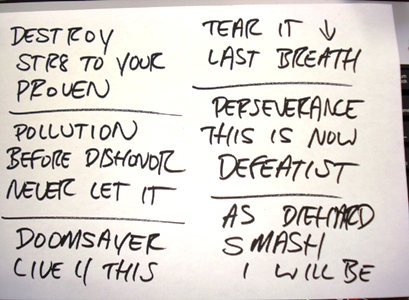 DESTROY
STR8 TO YOUR
PROVEN
POLLUTION
BEFORE DISHONOR
NEVER LET IT
DOOMSAYER
LIVE 4 THIS
TEAR IT ↓
LAST BREATH
PERSEVERANCE
THIS IS NOW
DEFEATIST
AS DIEHARD
SMASH
I WILL BE